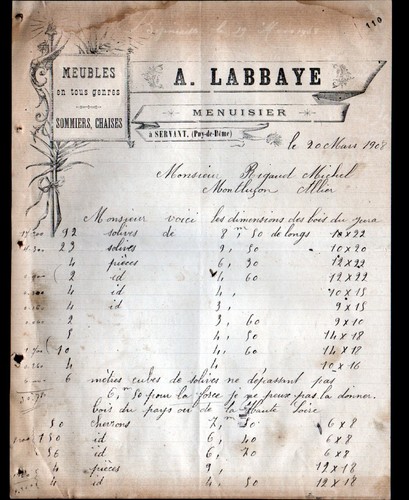 110
MEUBLES
en tous genres
SOMMIERS, CHAISES
A. LABBAYE
MENUISIER
à SERVANT, (Puy-de-Dôme)
le 20 Mars 1908
Monsieur Rigaud Michel
Montluçon Allier
Monsieur voici les dimensions des bois du jura
92 solives de 8 m 50 de longs 18 x 22
23 solives 9, 50 10 x 20
4 pièces 6, 30 12 x 22
2 id 4, 60 12 x 22
4 id 4, 10 x 15
4 id 3, 9 x 15
2 3, 60 9 x 10
5 4, 50 14 x 18
10 4, 60 14 x 18
4 4, 10 x 16
6 mètres cubes de solives ne dépassant pas
6, m 50 pour la force je ne peux pas la donner.
bois du pays ou de la Haute Loire
50 chevrons 7, 50 6 x 8
150 id 6, 40 6 x 8
56 id 6, 20 6 x 8
4 pièces 9, 12 x 18
4 id 4, 50 12 x 18